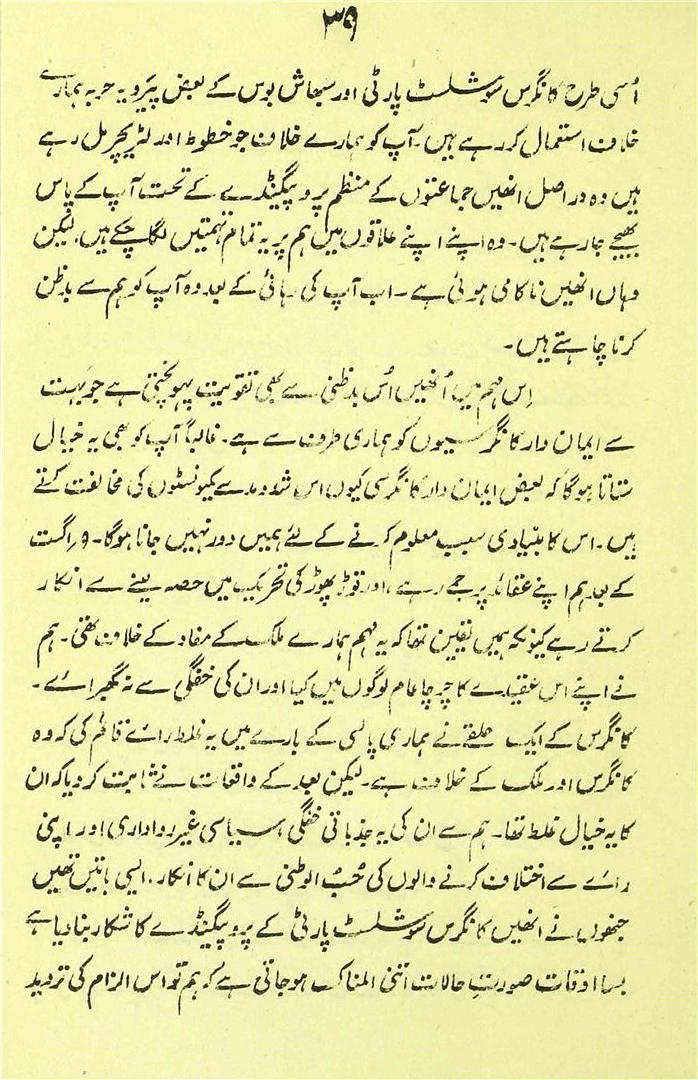 ۳۹
اُسی طرح کانگرس سوشلسٹ پارٹی اور سبھاش بوس کے بعض پیَرو یہ حربہ ہمارے
خلاف استعمال کررہے ہیں۔ آپ کو ہمارے خلاف جو خطوط اور لٹریچر مل رہے
ہیں وہ دراصل انھیں جماعتوں کے منظم پروپگینڈے کے تحت آپ کے پاس
بھیجے جارہے ہیں۔ وہ اپنے اپنے علاقوں میں ہم پر یہ تمام تہمتیں لگا چکے ہیں، لیکن
وہاں انھیں ناکامی ہوئی ہے۔ اب آپ کی رہائی کے بعد وہ آپ کو ہم سے بدظن
کرنا چاہتے ہیں۔
اِس مہم میں اُنھیں اُس بدظنی سے بھی تقویت پہونچتی ہے جو بہت
سے ایمان دار کانگرسیوں کو ہماری طرف سے ہے۔ غالباً آپ کو بھی یہ خیال
ستاتا ہوگا کہ بعض ایمان دار کانگرسی کیوں اس شدومد سے کمیونسٹوں کی مخالفت کرتے
ہیں۔ اس کا بنیادی سبب معلوم کرنے کے لئے ہمیں دور نہیں جانا ہوگا۔ ۹ر اگست
کے بعد ہم اپنے عقائد پر جمے رہے، اور توڑ پھوڑ کی تحریک میں حصہ لینے سے انکار
کرتے رہے کیونکہ ہمیں یقین تھا کہ یہ مہم ہمارے ملک کے مفاد کے خلاف تھی۔ ہم
نے اپنے اس عقیدے کا چرچا عام لوگوں میں کیا اور ان کی خفگی سے نہ گھبرائے۔
کانگرس کے ایک حلقے نے ہماری پالسی کے بارے میں یہ غلط رائے قائم کی کہ وہ
کانگرس اور ملک کے خلاف ہے۔ لیکن بعد کے واقعات نے ثابت کردیا کہ ان
کا یہ خیال غلط تھا۔ ہم سے ان کی یہ جذباتی خفگی، سیاسی غیر رواداری اور اپنی
رائے سے اختلاف کرنے والوں کی حُبُ الوطنی سے ان کا انکار، ایسی باتیں تھیں
جنھوں نے انھیں کانگرس سوشلسٹ پارٹی کے پروپگینڈے کا شکار بنا دیا ہے
بسا اوقات صورتِ حالات اتنی المناک ہوجاتی ہے کہ ہم تو اس الزام کی تردید